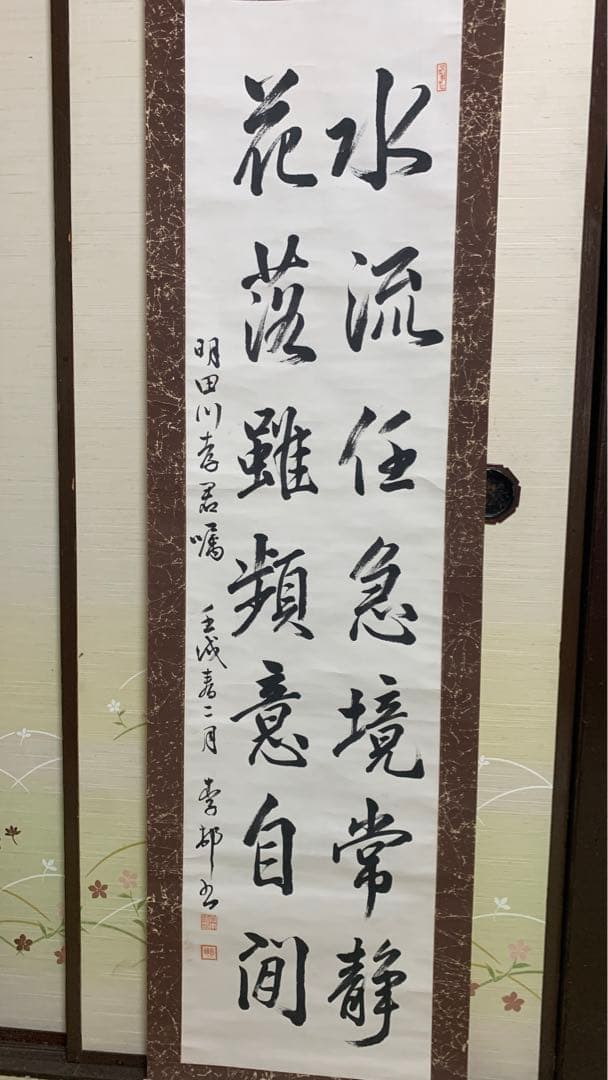 水流任急境常静
花落雖頻意自閒
明田川孝君嘱 壬戌春二月 李邨書